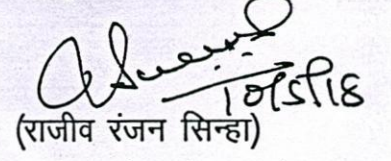 10/5/18
(राजीव रंजन सिन्हा)